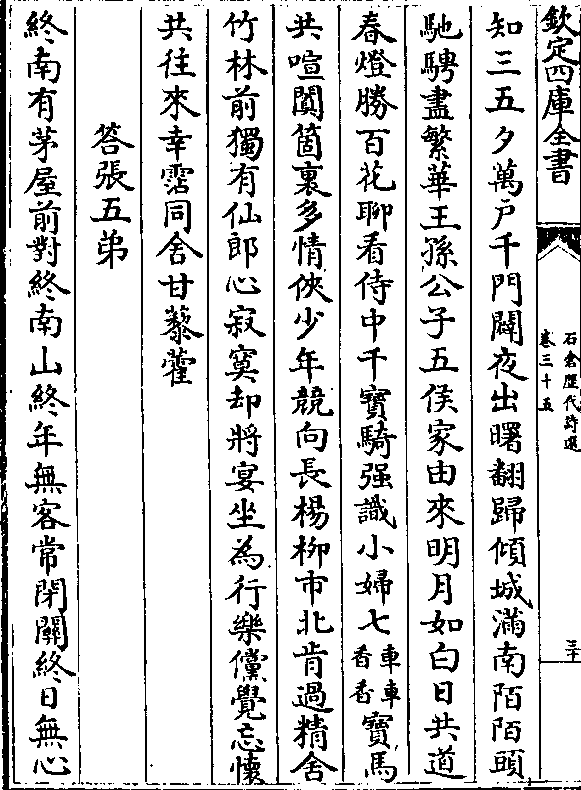 欽定四庫全書
石倉歷代詩選
卷三十五
三十
知三五夕萬戶千門闢夜出曙翻歸傾城滿南陌陌頭
馳騁盡繁華王孫公子五侯家由來明月如白日共道
春燈勝百花聊看侍中千寶騎强識小婦七車車香香寶馬
共喧闐箇裏多情俠少年競向長楊柳市北肯過精舍
竹林前獨有仙郎心寂寞却將宴坐為行樂儻覺忘懷
共往來幸霑同舍甘藜藿
答張五弟
終南有茅屋前對終南山終年無客常閉關終日無心